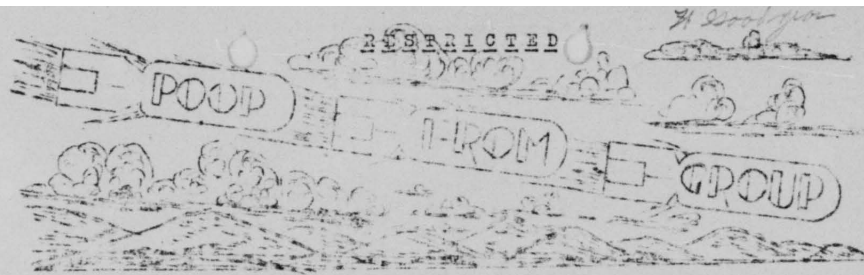 RESTRICTED
POOP
FROM
GROUP